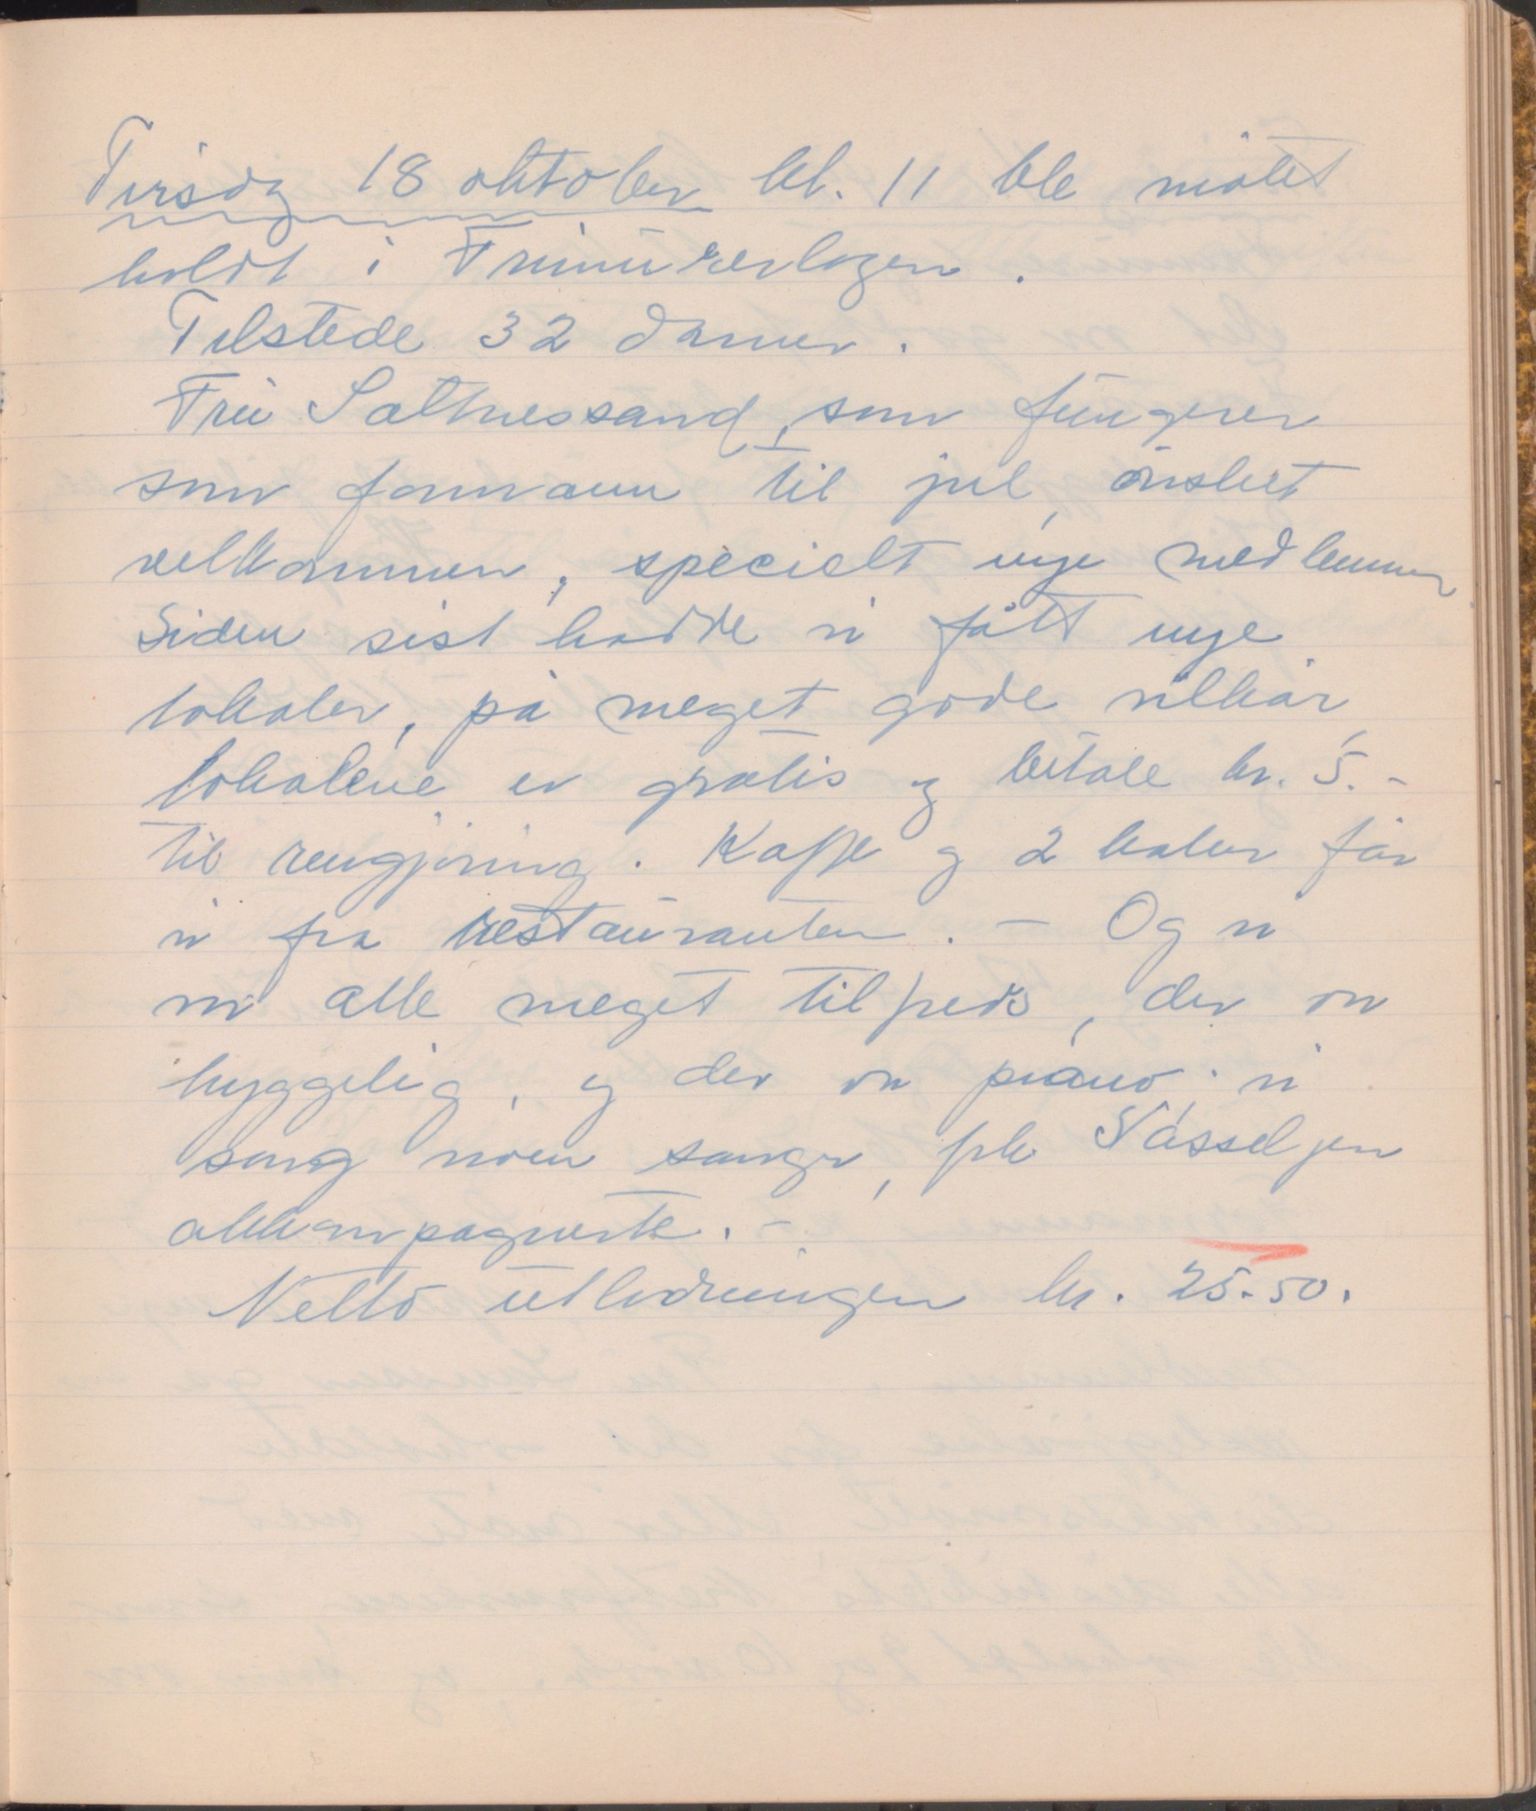 Tirsdag 18 oktober kl. 11 ble møtet
holdt i Frimurerlogen.
Tilstede 32 damer.
Fru Sættnessand, som fungerer
som formann til jul, ønsket
velkommen, specielt nye medlemmer
Siden sist hadde vi fått nye
lokaler, på meget gode vilkår,
lokalene er gratis og betale kr. 5.-
til rengjøring. Kaffe og 2 kaker får
vi fra restauranten. - Og vi
var alle meget tilfreds, der var
hyggelig, og der var piano, vi
sang noen sanger, frk Vasseljen
akkompagnerte. -
Netto utlodningen kr. 25.50.